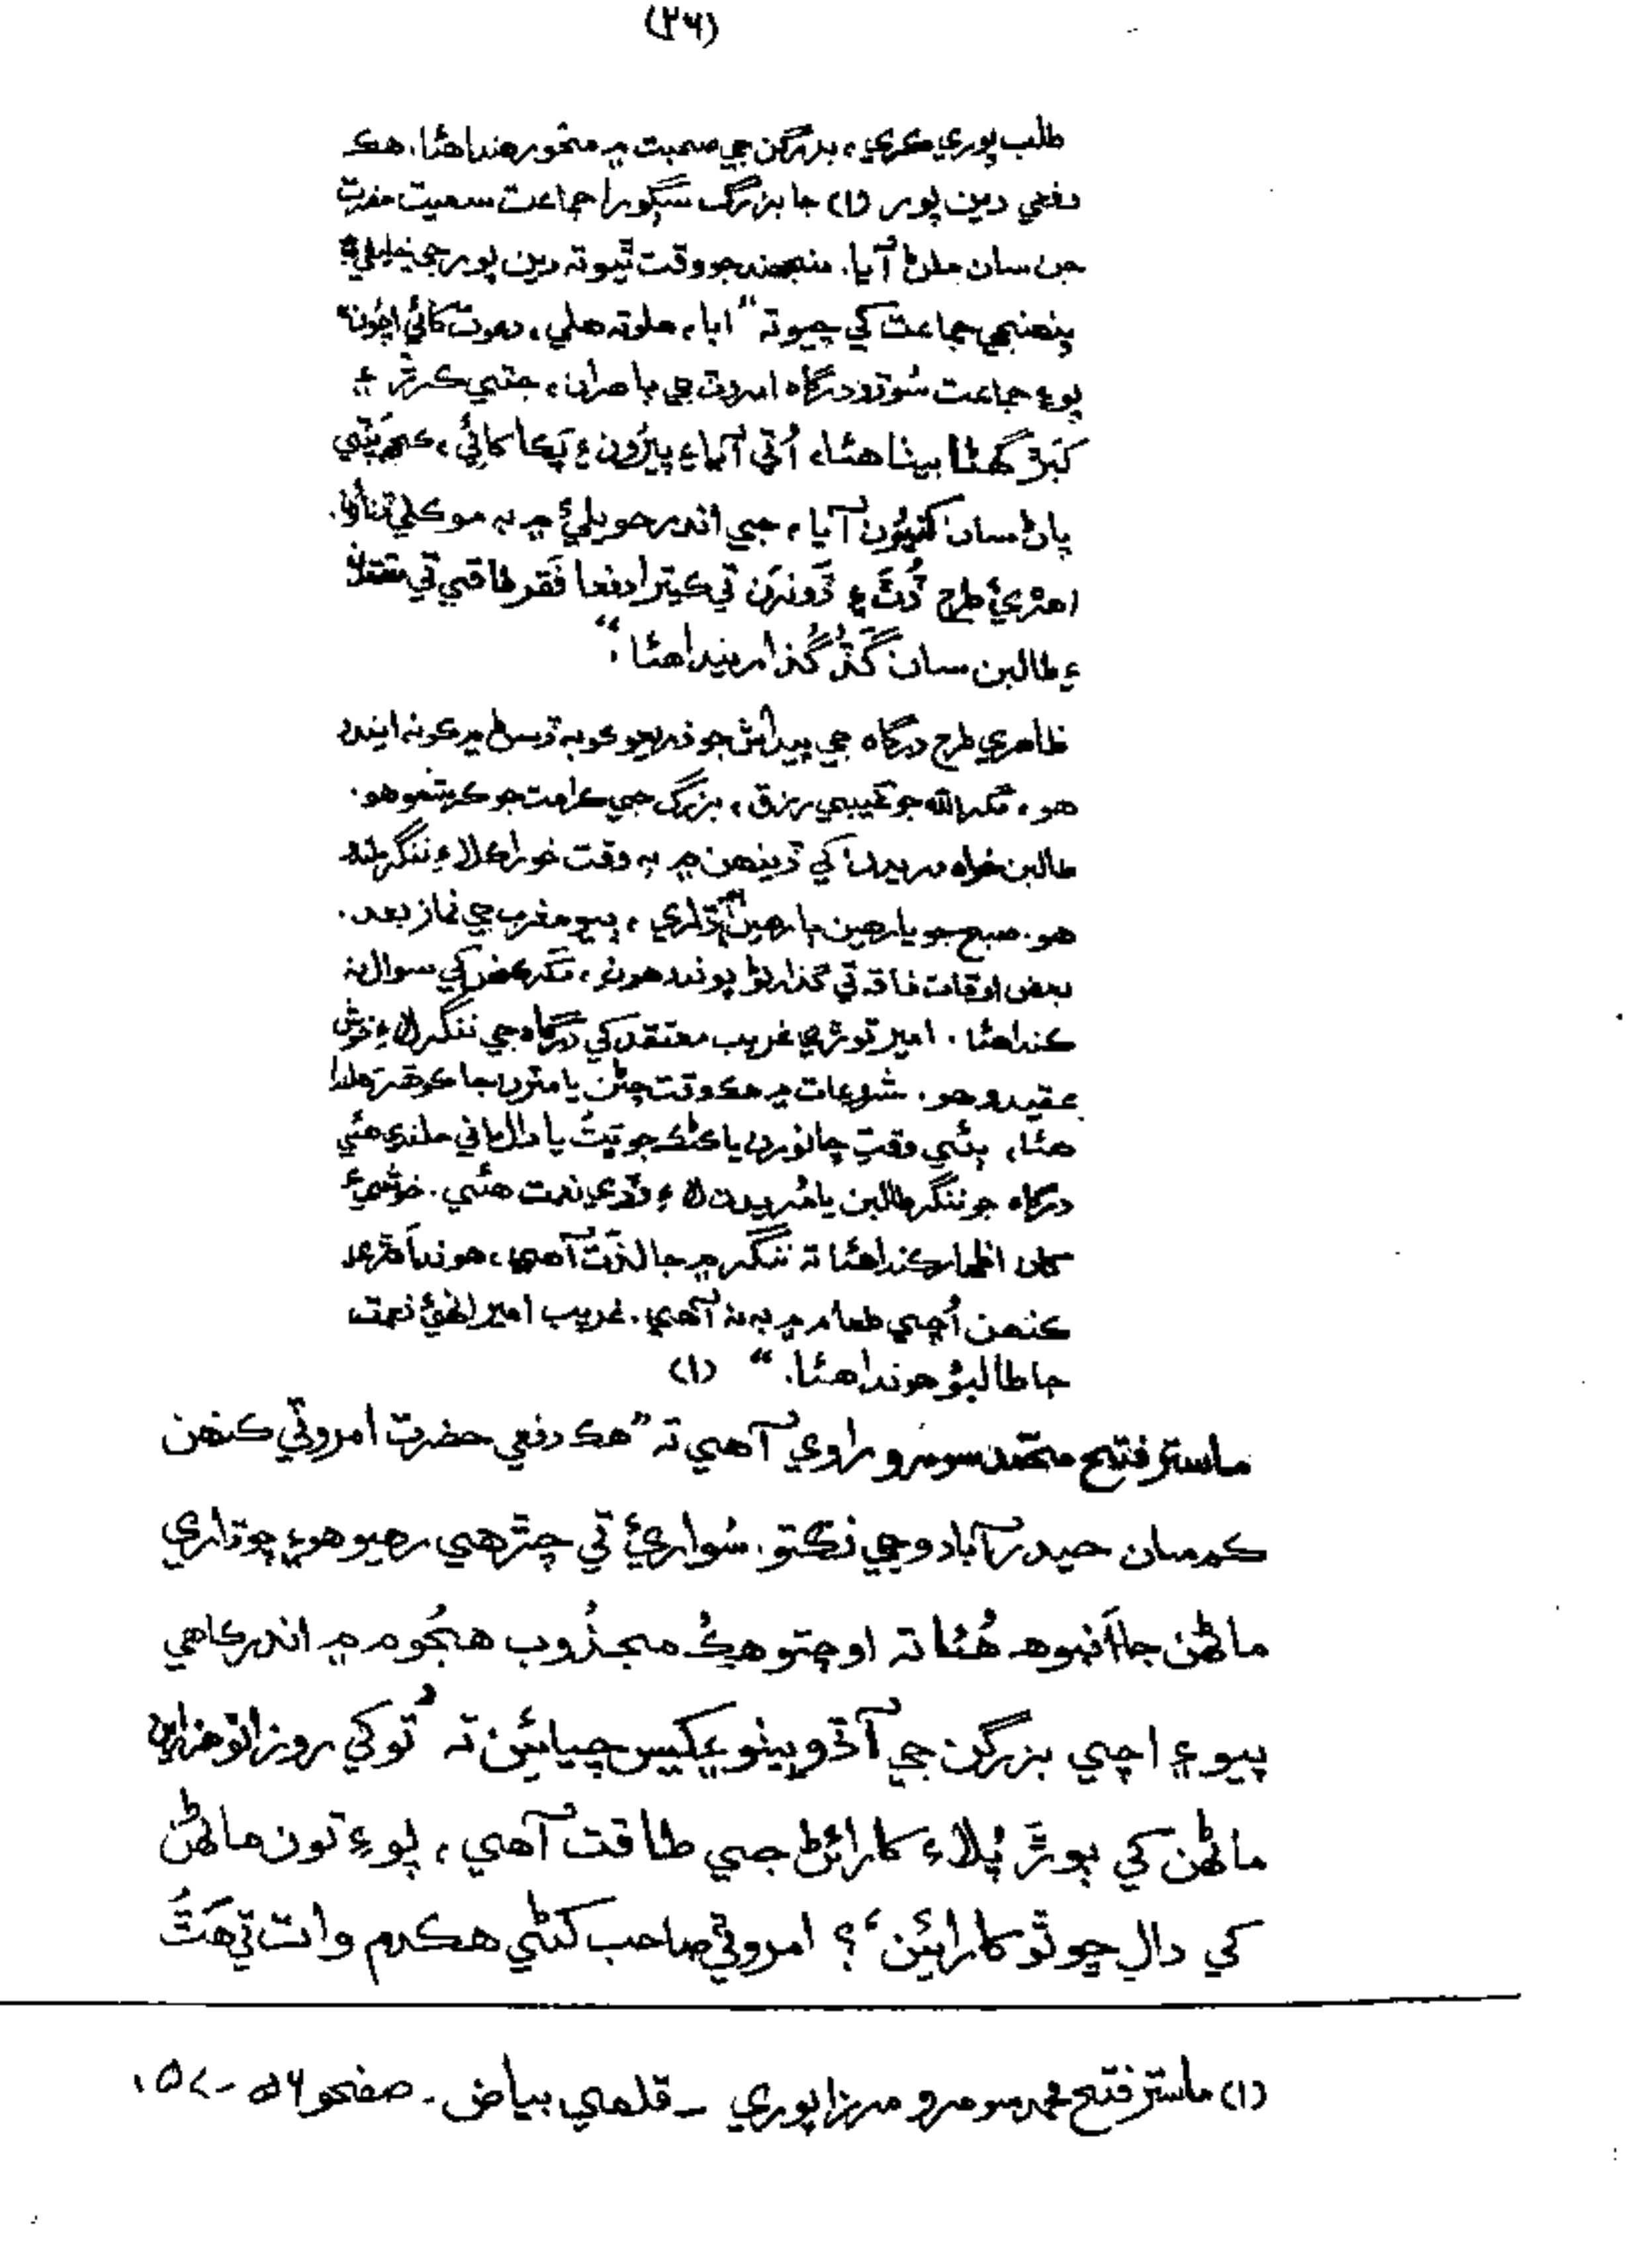 (٢٦)
طلب پوري ڪري، بزرگن جي صحبت ۾ مخمور رهندا هئا. هڪ
دفعي دين پور (١) جا بزرگ سڳورا جماعت سميت حضرت
جن سان ملڻ آيا. منجهند جو وقت ٿيو ته دين پور جي خليفي
پنهنجي جماعت کي چيو ته ”ابا، هلو ته هلي، دعوت کائي اچون“
پوءِ جماعت سُوڌو درگاه امروٽ جي ٻاهران، جتي ڪرڙ ۽
کٻڙ گهڻا بيٺا هئا، اُتي آيا ۽ پيرون ۽ پڪا کائي، ڪجهه ڀتي
پاڻ سان کنيون آيا، جي اندر حويليءَ ۾ به موڪلي ڏنائون.
اهڙيءَ طرح ڏُٿ ۽ ڏونرن تي ڪيترا دفعا فقر فاقي تي
۽ طالبن سان گڏ گذاريندا هئا.“
ظاهري طرح درگاه جي پيدائش جو ذريعو ڪو به ڏسڻ ۾ ڪونه ايندو
هو، مگر الله جو غيبي رزق، بزرگ جي ڪرامت جو ڪرشمو هو.
طالبن خواه مريدن کي ڏينهن ۾ ٻه وقت خوراڪ لاءِ لنگر ملندو
هو. صبح جو يارهين ٻارهين ڌاري، ٻيو مغرب جي نماز بعد.
بعض اوقات فاقه تي گذارڻو پوندو هون، مگر ڪنهن کي سوال نه
ڪندا هئا. امير توڙي غريب معتقدن کي درگاه جي لنگر لاءِ خوش
عقيدو هو. شروعات ۾ هڪ وقت چڻن يا مٽرن جا ڪوهر ملندا
هئا، ٻئي وقت چانورن يا ڪڻڪ جو ڀت يا دال ماني ملندي هئي
درگاه جو لنگر طالبن يا مريدن لاءِ وڏي نعمت هئي. خوشيءَ
کان اظهار ڪندا هئا ته لنگر ۾ جا لذت آهي، هوند اهڙي
ڪنهن اُچي طعام ۾ به نه آهي. غريب امير انهيءَ نعمت
جا طالبو هوندا هئا. “ (١)
ماستر فتح محمد سومرو راوي آهي ته ”هڪ دفعي حضرت امروٽي ڪنهن
ڪم سان حيدرآباد وڃي نڪتو. سُواريءَ تي چڙهي رهيو هو ۽ چوڌاري
ماڻهن جا اَنبوهه هُئا ته اوچتو هڪ مجذُوب هجُوم ۾ اندر ڪاهي
پيو ۽ اچي بزرگن جي آڏو بيٺو ۽ کيس چيائين ته ’تو کي روزانو هزارين
ماڻهن کي ٻوڙ پُلاءُ کارائڻ جي طاقت آهي، پوءِ تون ماڻهن
کي دال ڇو ٿو کارائين‘؟ امروٽي صاحب کڻي هڪدم وات تي هَٿُ
(١) ماستر فتح محمد سومرو مرزاپوري - قلمي بياض - صفحو ٥٦ - ٥٧.